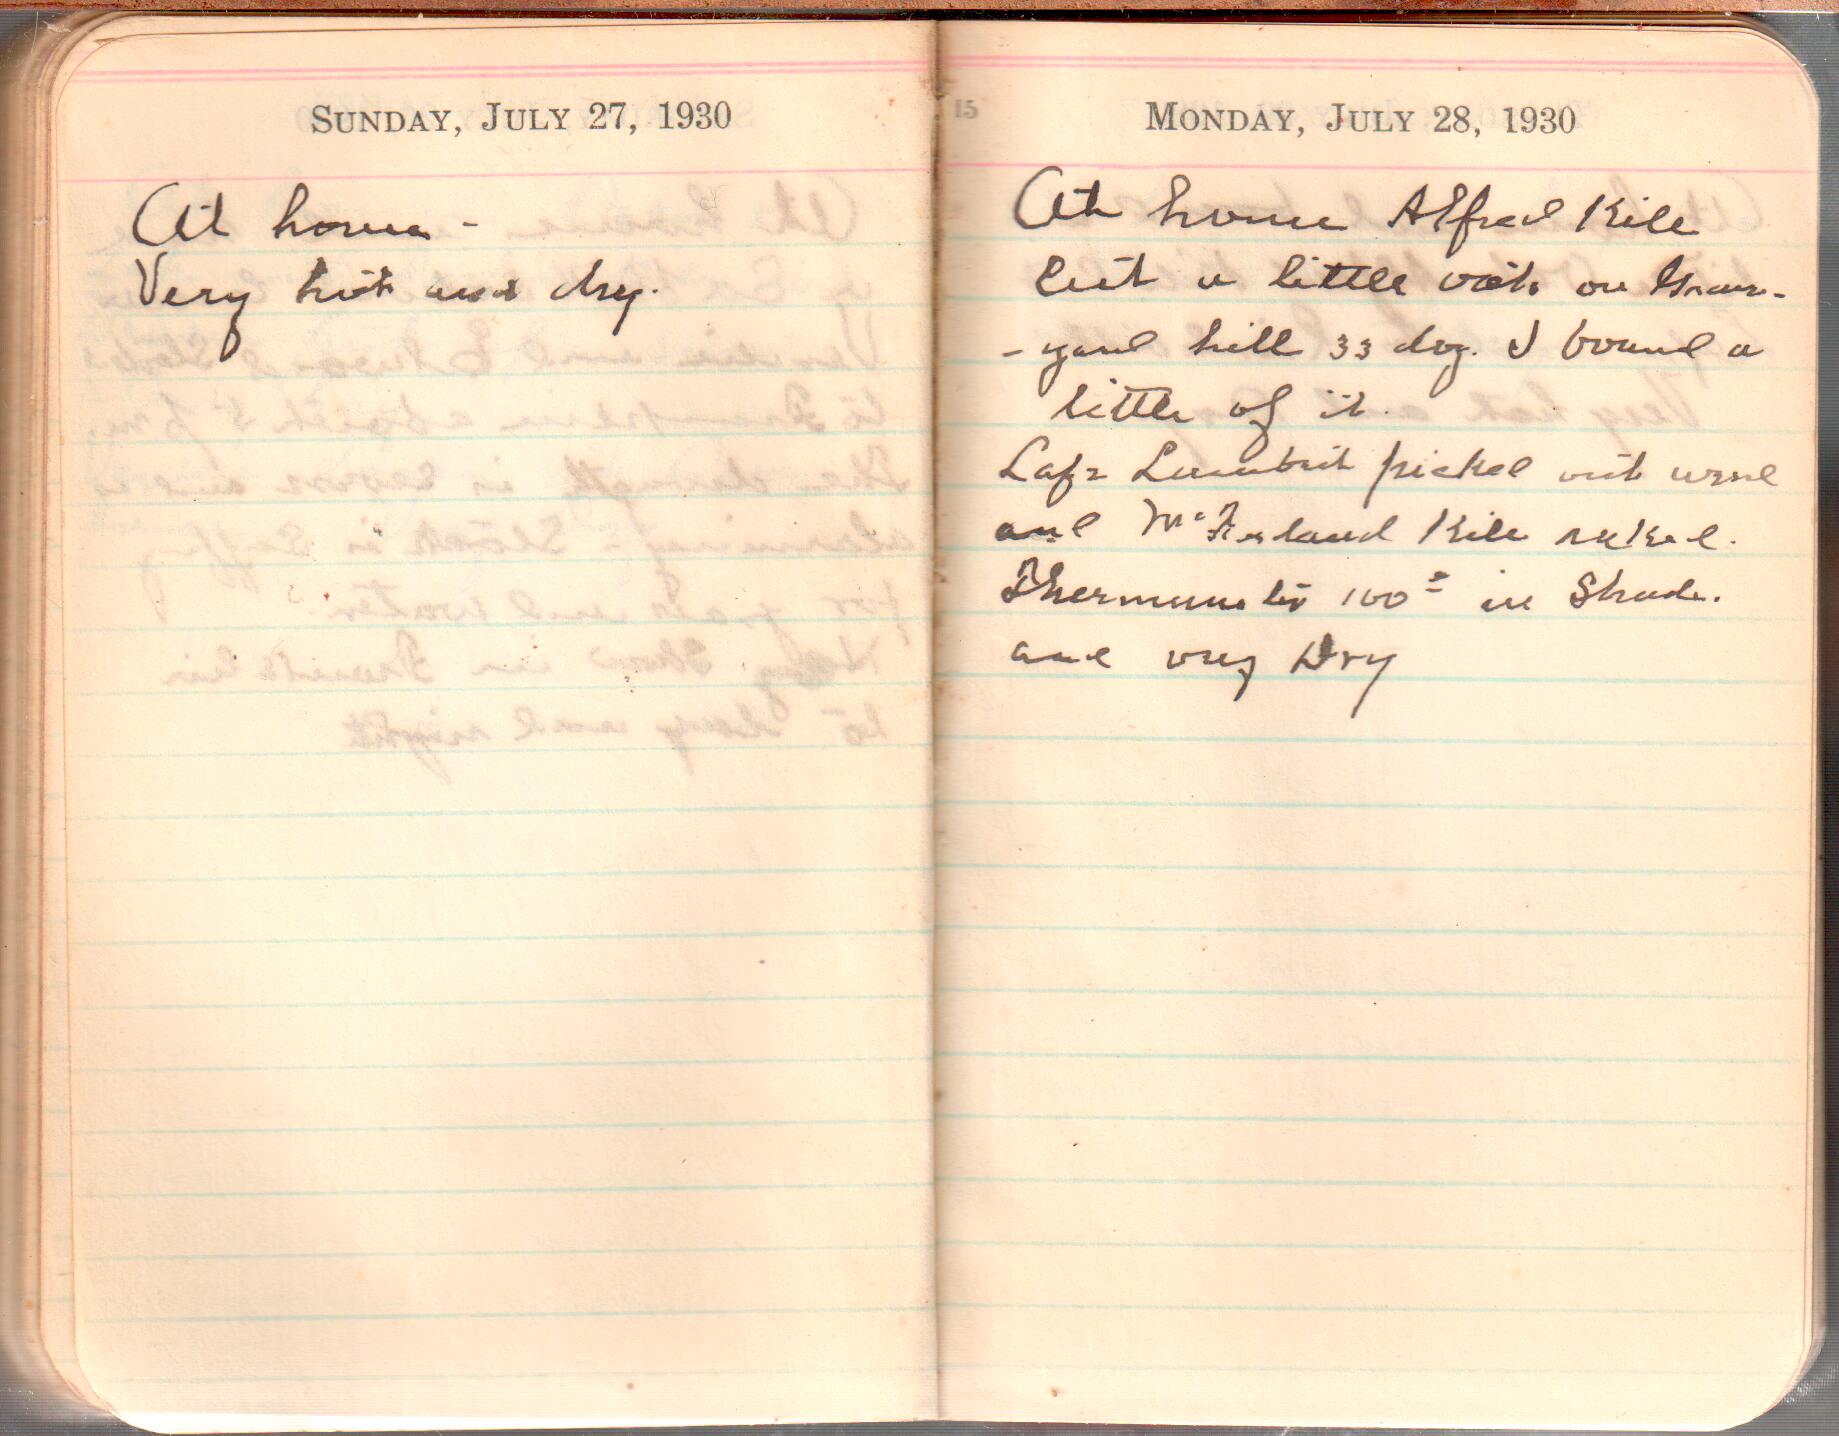 SUNDAY, JULY 27, 1930
At home -
Very hot and dry.
15
MONDAY, JULY 28, 1930
At home Alfred Kile
cut a little oats on Grave-
-yard hill 33 doz. I bound a
little of it.
Lafe Lambert picked out wool
and McFarland Kile raked.
Thermometer 100° in Shade.
and very Dry